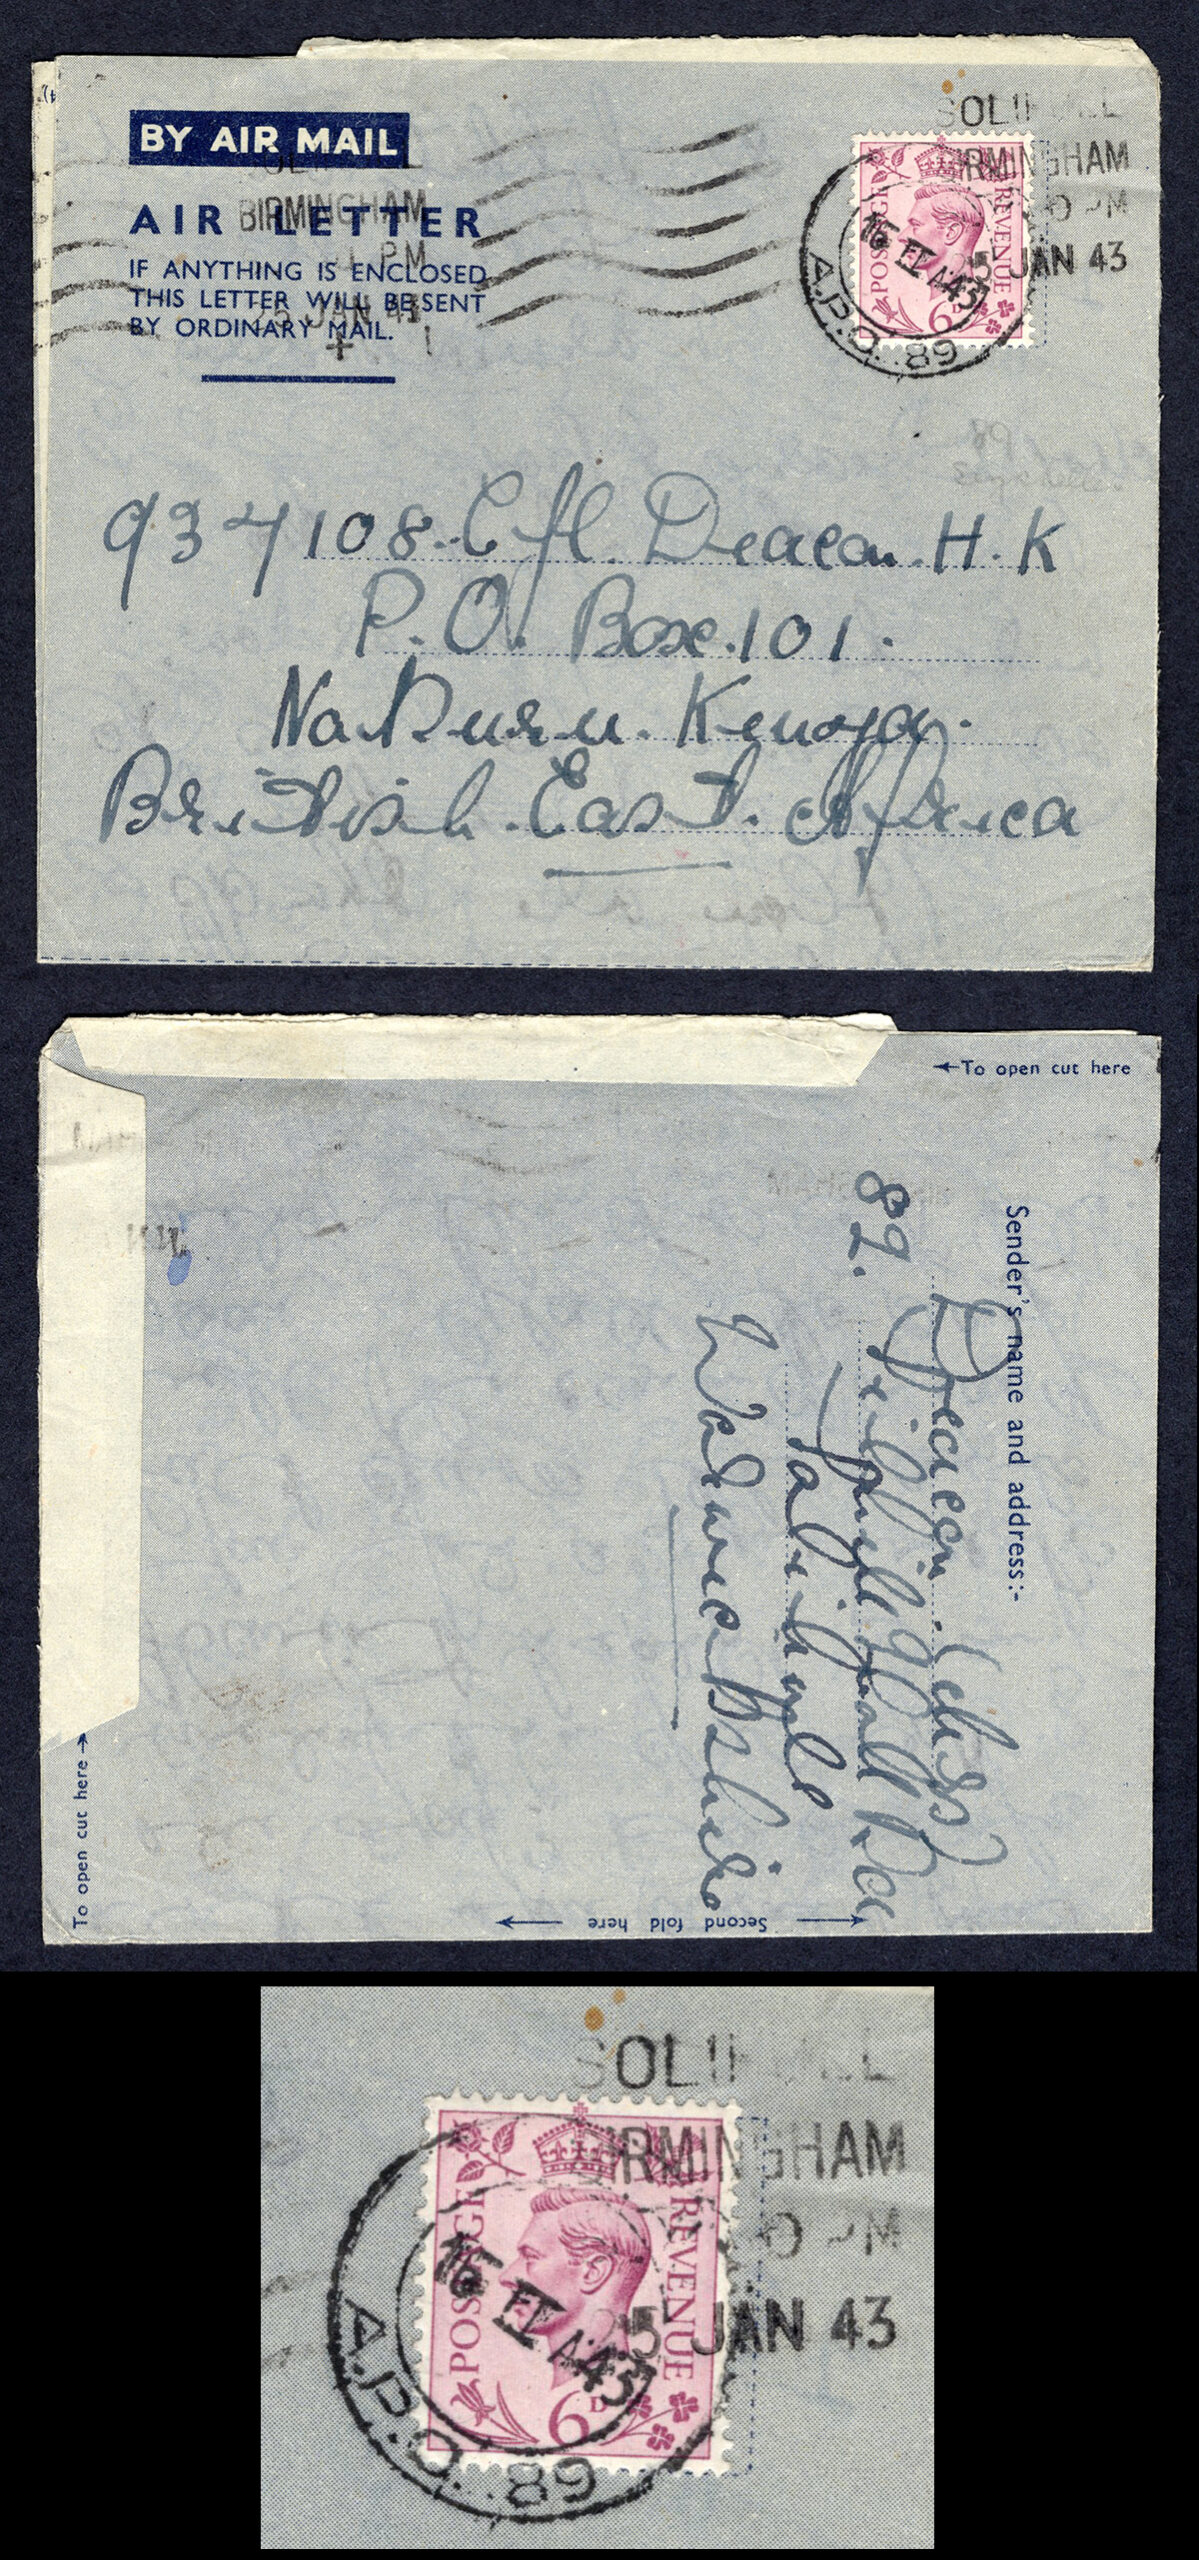 BY AIR MAIL
AIR LETTER
IF ANYTHING IS ENCLOSED
THIS LETTER WILL BE SENT
BY ORDINARY MAIL.
BIRMINGHAM
PM
25 JAN 43
SOLIHULL
BIRMINGHAM
PM
25 JAN 43
POSTAGE REVENUE
6D
16 FE 43
A.P.O. 89
937108. Cfl. Deacon. H. K
P. O. Box. 101.
Nakuru. Kenya.
British. East. Africa
To open cut here
Sender's name and address:-
Deacon. (Mrs)
82.
Yardley
Warwickshire
Second fold here
To open cut here
SOLIHULL
BIRMINGHAM
PM
25 JAN 43
POSTAGE REVENUE
6D
16 FE 43
A.P.O. 89